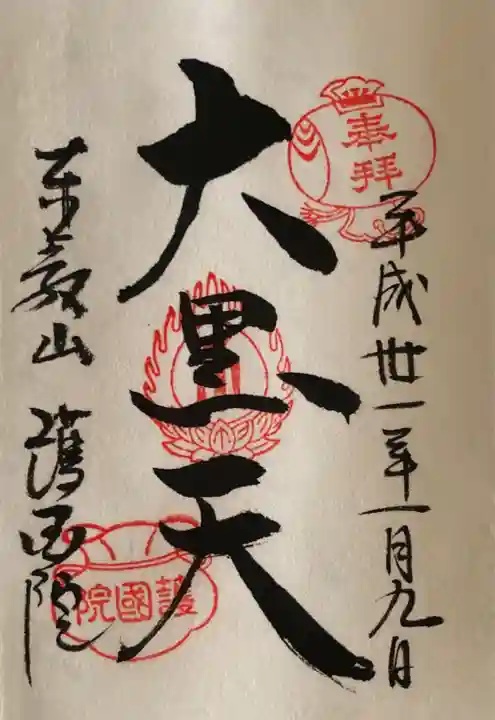 奉拝
平成卅一年一月九日
大黒天
東叡山 護国院
護國院